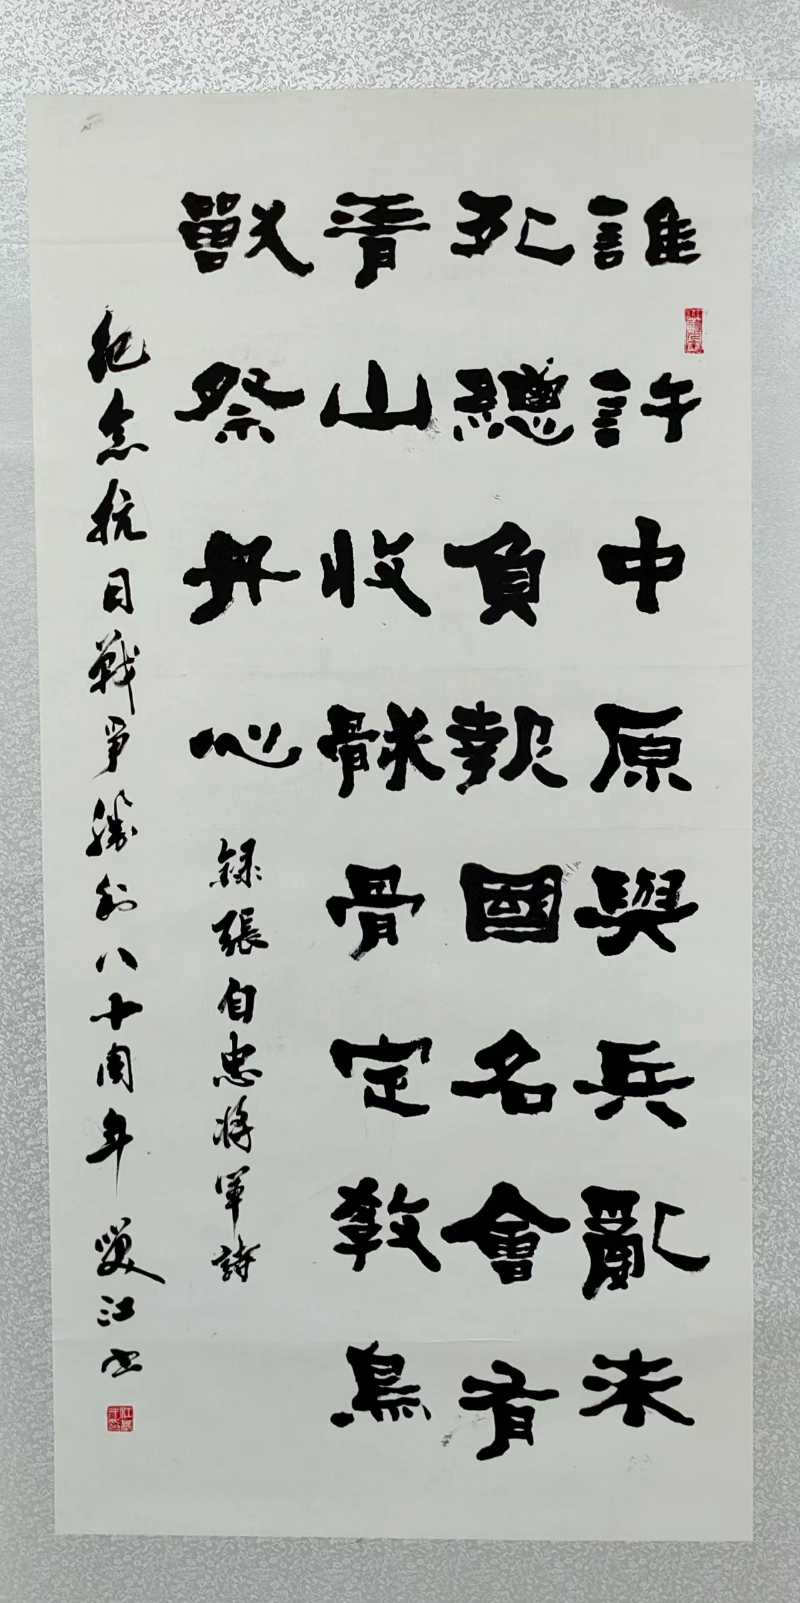 誰許中原與兵亂未
死總負報國名會有
青山收骸骨定教鳥
獸祭丹心
録張自忠将軍詩
纪念抗日戰爭勝利八十周年 江书